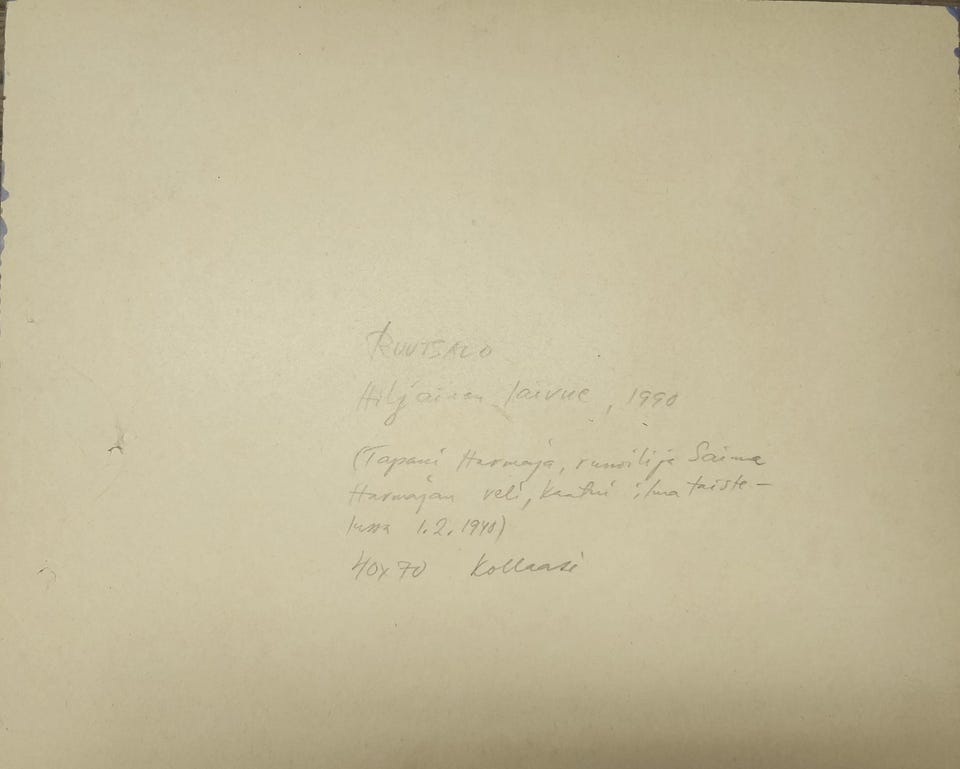 RUUTSALO
Hiljainen laivue, 1990
(Tapani Harmaja, runoilija Saima
Harmajan veli, kaatui ilmataiste-
lussa 1.2.1940)
40x70 Kollaasi